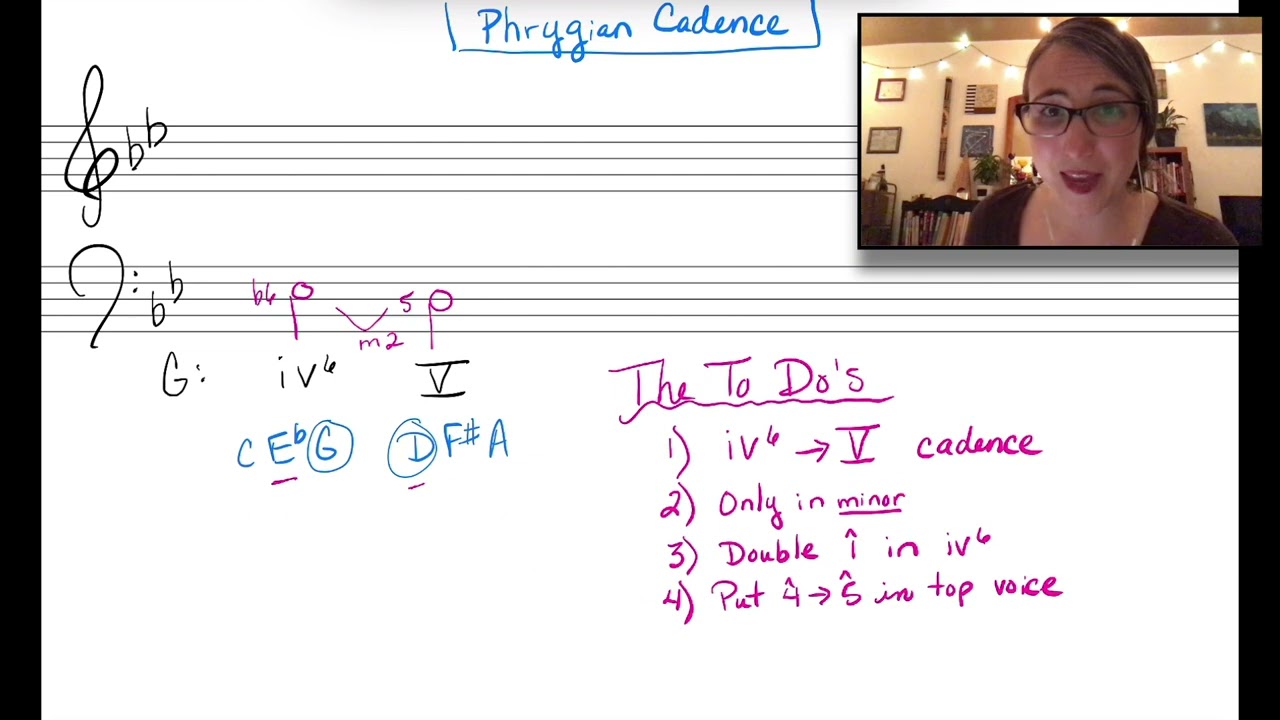 Phrygian Cadence
b6 5
m2
G: iv6 V
C Eb G D F# A
The To Do's
1) iv6 → V cadence
2) Only in minor
3) Double 1̂ in iv6
4) Put 4̂ → 5̂ in top voice